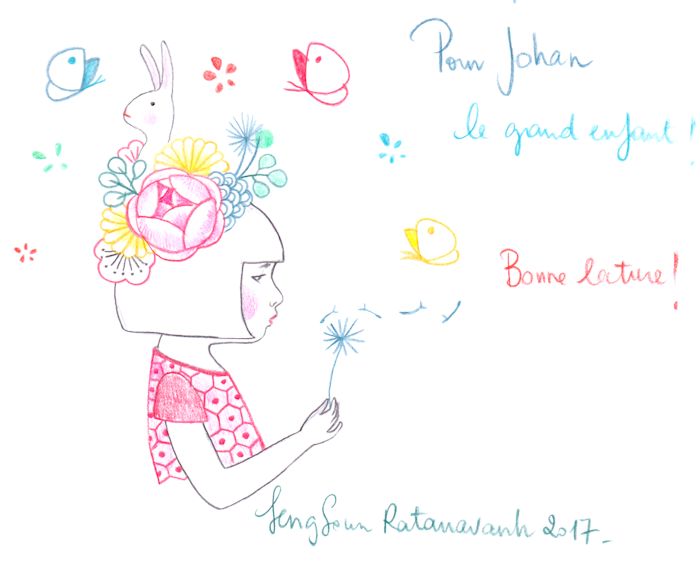 Pour Johan
le grand enfant !
Bonne lecture !
Seng Soun Ratanavanh 2017_